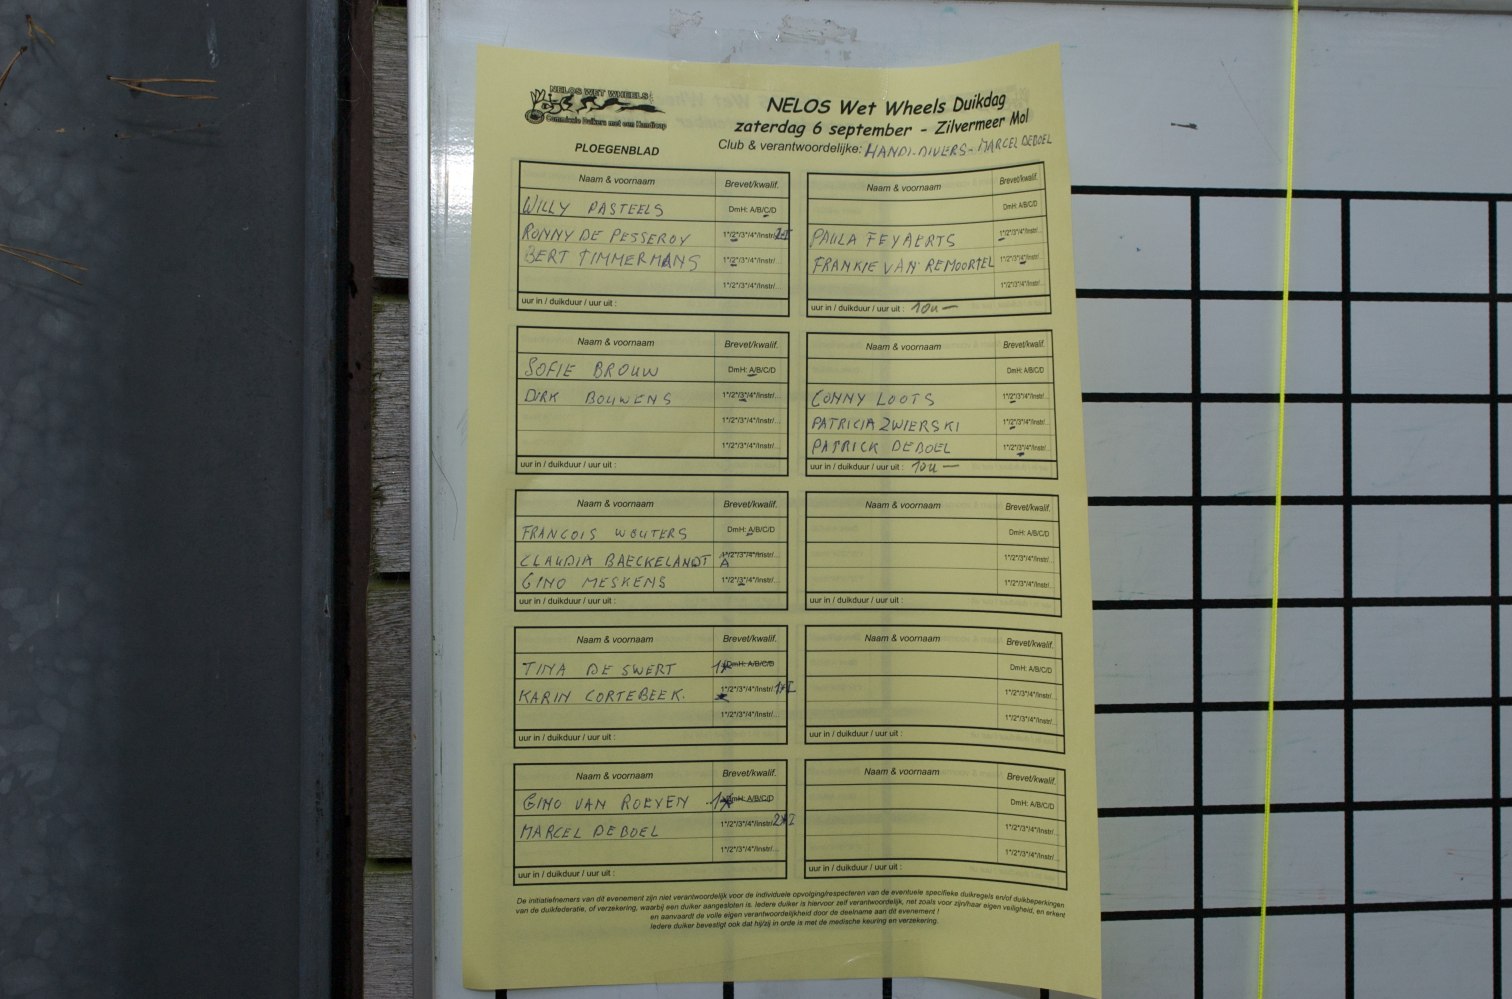 NELOS WET WHEELS
Commissie Duikers met een Handicap
NELOS Wet Wheels Duikdag
zaterdag 6 september - Zilvermeer Mol
PLOEGENBLAD
Club & verantwoordelijke: HANDI-DIVERS - MARCEL DEBOEL
Naam & voornaam Brevet/kwalif.
WILLY PASTEELS DmH: A/B/C/D
RONNY DE PESSEROY 1*/2*/3*/4*/Instr/...
BERT TIMMERMANS 1*/2*/3*/4*/Instr/...
1*/2*/3*/4*/Instr/...
uur in / duikduur / uur uit :
Naam & voornaam Brevet/kwalif.
DmH: A/B/C/D
PAULA FEYAERTS 1*/2*/3*/4*/Instr/...
FRANKIE VAN REMOORTEL 1*/2*/3*/4*/Instr/...
1*/2*/3*/4*/Instr/...
uur in / duikduur / uur uit : 10u —
Naam & voornaam Brevet/kwalif.
SOFIE BROUW DmH: A/B/C/D
DIRK BOUWENS 1*/2*/3*/4*/Instr/...
1*/2*/3*/4*/Instr/...
1*/2*/3*/4*/Instr/...
uur in / duikduur / uur uit :
Naam & voornaam Brevet/kwalif.
DmH: A/B/C/D
CONNY LOOTS 1*/2*/3*/4*/Instr/...
PATRICIA ZWIERSKI 1*/2*/3*/4*/Instr/...
PATRICK DEBOEL 1*/2*/3*/4*/Instr/...
uur in / duikduur / uur uit : 10u —
Naam & voornaam Brevet/kwalif.
FRANCOIS WOUTERS DmH: A/B/C/D
CLAUDIA BAECKELANDT A 1*/2*/3*/4*/Instr/...
GINO MESKENS 1*/2*/3*/4*/Instr/...
uur in / duikduur / uur uit :
Naam & voornaam Brevet/kwalif.
DmH: A/B/C/D
1*/2*/3*/4*/Instr/...
1*/2*/3*/4*/Instr/...
uur in / duikduur / uur uit :
Naam & voornaam Brevet/kwalif.
TINA DE SWERT 1* DmH: A/B/C/D
KARIN CORTEBEEK. 1*/2*/3*/4*/Instr/ 1*I
1*/2*/3*/4*/Instr/...
uur in / duikduur / uur uit :
Naam & voornaam Brevet/kwalif.
DmH: A/B/C/D
1*/2*/3*/4*/Instr/...
1*/2*/3*/4*/Instr/...
uur in / duikduur / uur uit :
Naam & voornaam Brevet/kwalif.
GINO VAN ROEYEN 1* DmH: A/B/C/D
MARCEL DEBOEL 1*/2*/3*/4*/Instr/ 2*I
1*/2*/3*/4*/Instr/...
uur in / duikduur / uur uit :
Naam & voornaam Brevet/kwalif.
DmH: A/B/C/D
1*/2*/3*/4*/Instr/...
1*/2*/3*/4*/Instr/...
uur in / duikduur / uur uit :
De initiatiefnemers van dit evenement zijn niet verantwoordelijk voor de individuele opvolging/respecteren van de eventuele specifieke duikregels en/of duikbeperkingen
van de duikfederatie, of verzekering, waarbij een duiker aangesloten is. Iedere duiker is hiervoor zelf verantwoordelijk, net zoals voor zijn/haar eigen veiligheid, en erkent
en aanvaardt de volle eigen verantwoordelijkheid door de deelname aan dit evenement !
Iedere duiker bevestigt ook dat hij/zij in orde is met de medische keuring en verzekering.